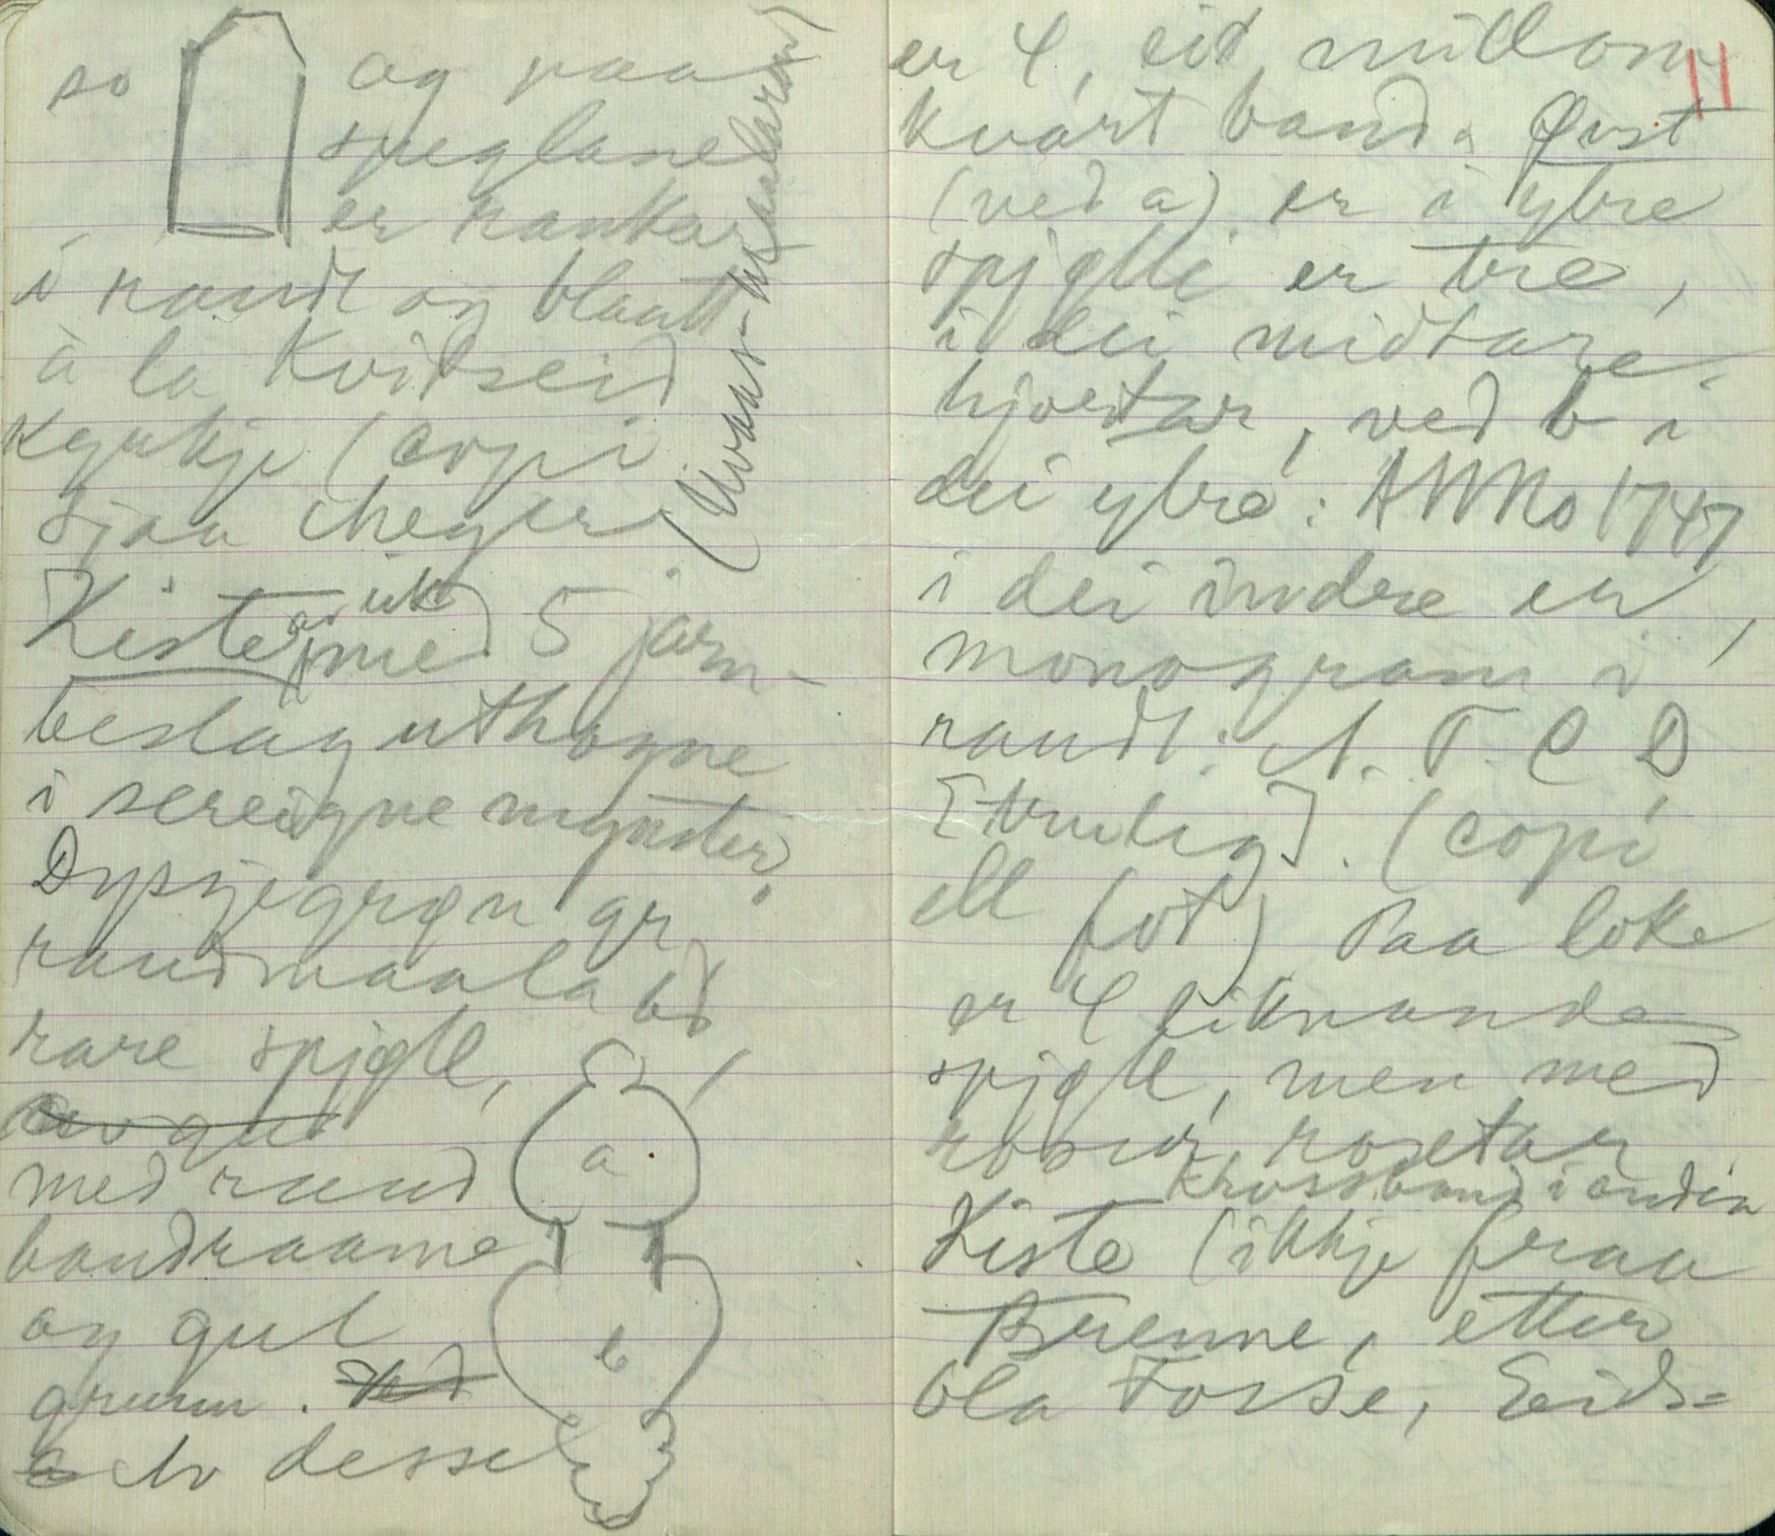 so
og paa
speglane
er rankar
i raudt og blaatt
à la Kvitseid
kyrkje (copi
sjaa
Kiste, med 5 jarn-
uk
beslag uthogne
i sereigne mynster.
Dypsjegrøn gr
raudmaala bd
rare spjøll,
med raud
bandraame
og gul
grunn.
Av desse
a
b
er 4, eit millom
kvart band. Øvst
(ved a) er i ytre
spjølli er tre,
i dei midtare
hjortar, ved b i
dei ytre: ANNo 1747
i dei indre er,
monogram i
raudt: A. T. C D
[truleg]. (copi
ell fot) Paa loke
er 4 liknande
spjøll, men med
roser, rosetar
Krossband i andin
Kiste (ikkje fraa
Brenne, etter
Ola Fosse, Eids-
11